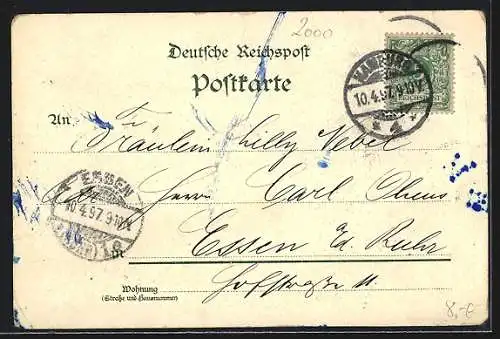 2000
Deutsche Reichspost
Postkarte
HAMBURG
10.4.97.9-10V.
REICHSPOST
An Fräulein Lilly Nebel
ESSEN
10.4.97.9-10
Herrn Carl
in Essen a/d. Ruhr
Wohnung
(Straße und Hausnummer)
Hofstrasse 11
8,-€